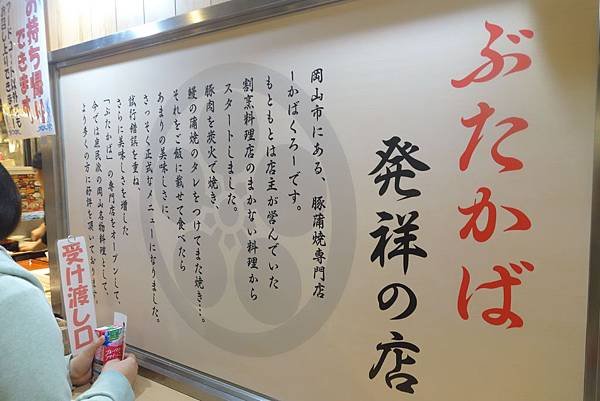 ぶたかば
発祥の店
岡山市にある、豚蒲焼専門店
「かばくろ」です。
もともとは店主が営んでいた
割烹料理店のまかない料理から
スタートしました。
豚肉を炭火で焼き、
鰻の蒲焼のタレをつけてまた焼き…。
それをご飯に載せて食べたら
あまりの美味しさに、
さっそく正式なメニューになりました。
試行錯誤を重ね、
さらに美味しさを増した
「ぶたかば」の専門店をオープンして、
今では庶民派の岡山名物料理として、
より多くの方に好評を頂いております。
お持ち帰り
できます
受け渡し口